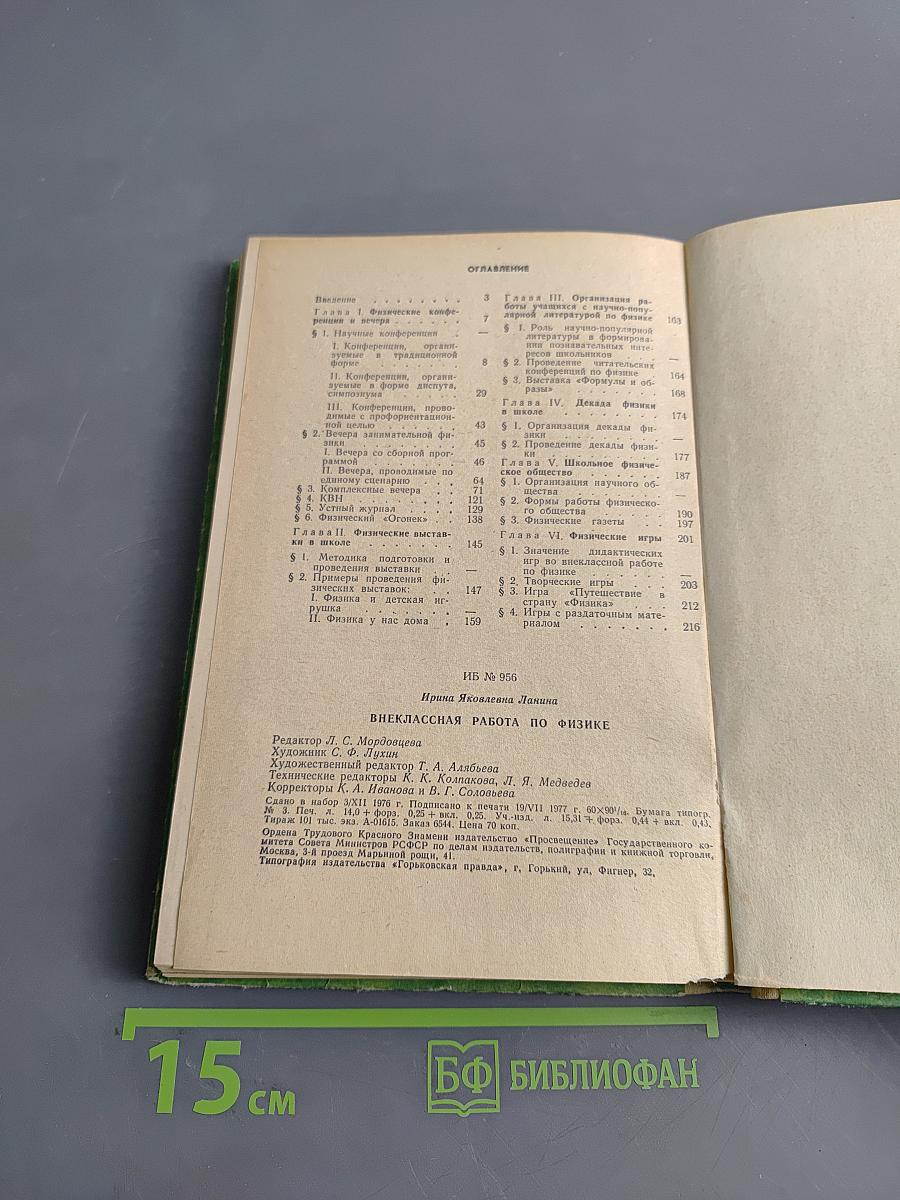 ОГЛАВЛЕНИЕ
Введение . . . . . . . . 3
Глава I. Физические конфе-
ренции и вечера . . . . . . 7
§ 1. Научные конференции . —
I. Конференции, органи-
зуемые в традиционной
форме . . . . . . . 8
II. Конференции, органи-
зуемые в форме диспута,
симпозиума . . . . . 29
III. Конференции, прово-
димые с профориентацион-
ной целью . . . . . . 43
§ 2. Вечера занимательной фи-
зики . . . . . . . . 45
I. Вечера со сборной прог-
раммой . . . . . . . 46
II. Вечера, проводимые по
единому сценарию . . . 64
§ 3. Комплексные вечера . . . 71
§ 4. КВН . . . . . . . . 121
§ 5. Устный журнал . . . . 129
§ 6. Физический «Огонек» . . 138
Глава II. Физические выстав-
ки в школе . . . . . . . 145
§ 1. Методика подготовки и
проведения выставки . . —
§ 2. Примеры проведения фи-
зических выставок: . . . 147
I. Физика и детская иг-
рушка . . . . . . . —
II. Физика у нас дома . . 159
Глава III. Организация ра-
боты учащихся с научно-попу-
лярной литературой по физике 163
§ 1. Роль научно-популярной
литературы в формирова-
нии познавательных инте-
ресов школьников . . . —
§ 2. Проведение читательских
конференций по физике 164
§ 3. Выставка «Формулы и об-
разы» . . . . . . . 168
Глава IV. Декада физики
в школе . . . . . . . . 174
§ 1. Организация декады фи-
зики . . . . . . . . —
§ 2. Проведение декады физи-
ки . . . . . . . . . 177
Глава V. Школьное физиче-
ское общество . . . . . . 187
§ 1. Организация научного об-
щества . . . . . . . —
§ 2. Формы работы физическо-
го общества . . . . . 190
§ 3. Физические газеты . . . 197
Глава VI. Физические игры 201
§ 1. Значение дидактических
игр во внеклассной работе
по физике . . . . . . —
§ 2. Творческие игры . . . . 203
§ 3. Игра «Путешествие в
страну «Физика» . . . 212
§ 4. Игры с раздаточным мате-
риалом . . . . . . . 216
ИБ № 956
Ирина Яковлевна Ланина
ВНЕКЛАССНАЯ РАБОТА ПО ФИЗИКЕ
Редактор Л. С. Мордовцева
Художник С. Ф. Лухин
Художественный редактор Т. А. Алябьева
Технические редакторы К. К. Колпакова, Л. Я. Медведев
Корректоры К. А. Иванова и В. Г. Соловьева
Сдано в набор 3/XII 1976 г. Подписано к печати 19/VII 1977 г. 60×90¹/₁₆. Бумага типогр.
№ 3. Печ. л. 14,0 + форз. 0,25 + вкл. 0,25. Уч.-изд. л. 15,31 + форз. 0,44 + вкл. 0,43.
Тираж 101 тыс. экз. А-01615. Заказ 6544. Цена 70 коп.
Ордена Трудового Красного Знамени издательство «Просвещение» Государственного ко-
митета Совета Министров РСФСР по делам издательств, полиграфии и книжной торговли,
Москва, 3-й проезд Марьиной рощи, 41.
Типография издательства «Горьковская правда», г. Горький, ул, Фигнер, 32,
15 см
БФ БИБЛИОФАН